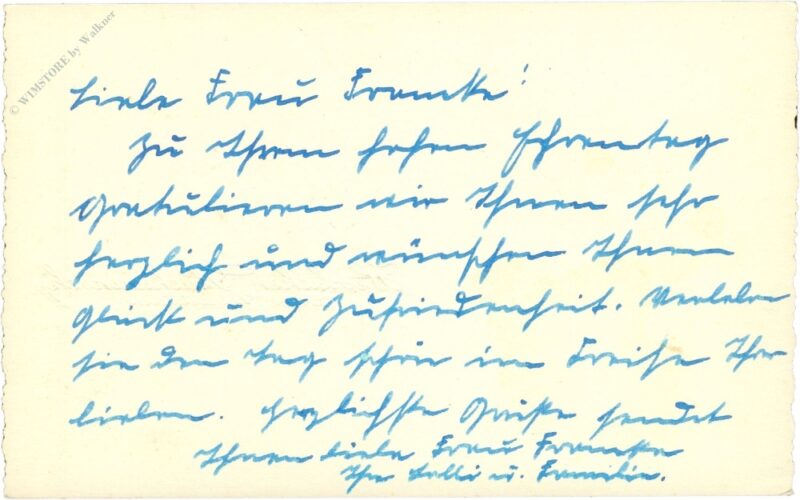 © WIMSTORE by Walkner
Liebe Frau Francke!
Zu Ihrem hohen Ehrentag
Gratulieren wir Ihnen sehr
herzlich und wünschen Ihnen
Glück und Zufriedenheit. Verleben
sie den Tag schön im Kreise Ihrer
Lieben. Herzlichste Grüße sendet
Ihnen liebe Frau Francke
Ihre u. Familie.